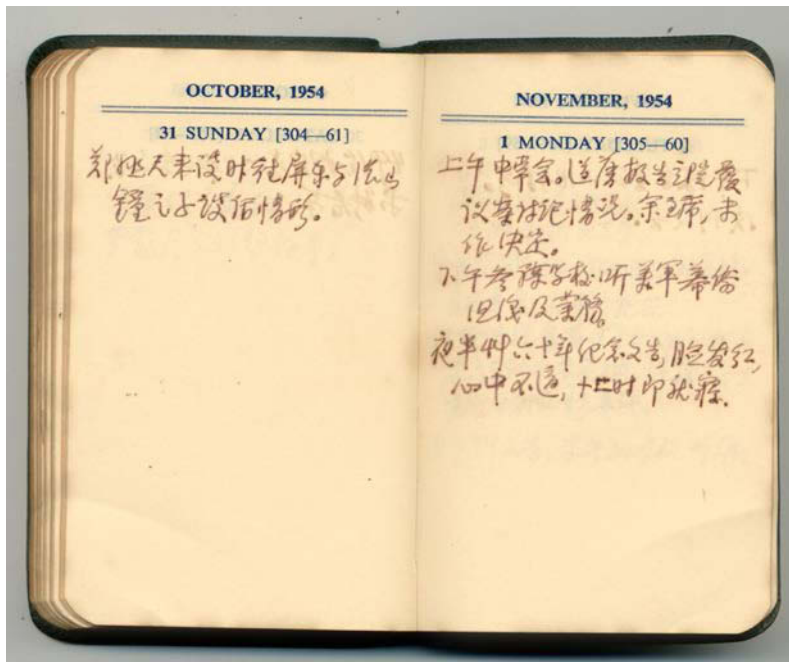 OCTOBER, 1954
31 SUNDAY [304—61]
来谈时往屏东与
之子谈话情形。
NOVEMBER, 1954
1 MONDAY [305—60]
上午中常会。道藩报告立院覆
议案讨论情况。余主席,未
作决定。
下午参谋学校听美军幕僚
组织及业务。
夜半艸六十年纪念文告,脸发红,
心中不适,十二时即就寝。